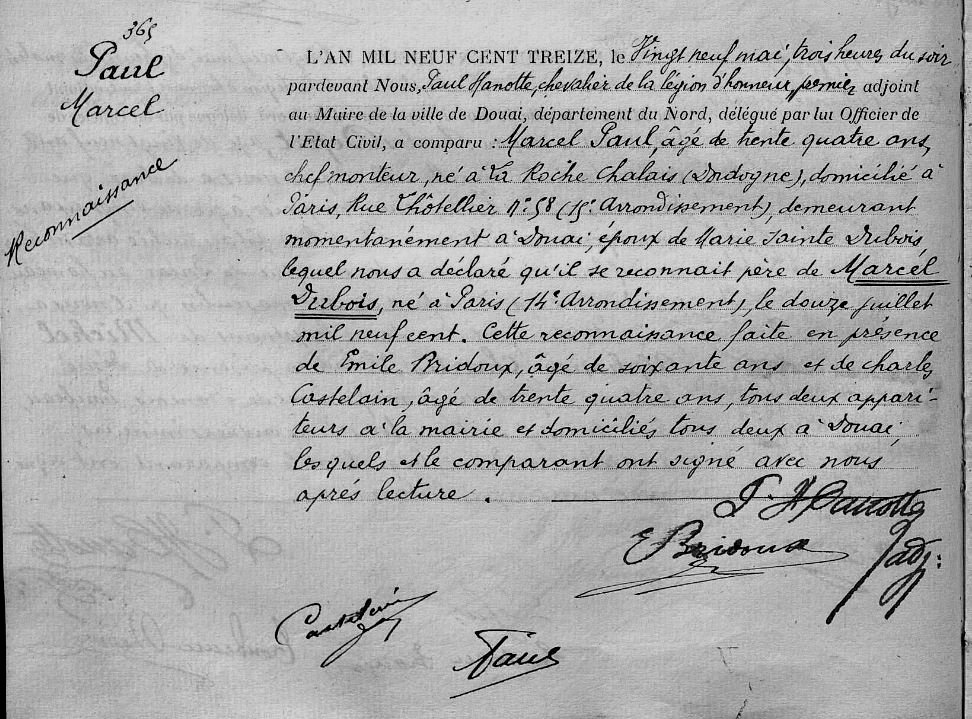 365
Paul
Marcel
Reconnaissance
L'AN MIL NEUF CENT TREIZE, le Vingt neuf mai, trois heures du soir
pardevant Nous, Paul Hanotte, chevalier de la légion d'honneur, premier adjoint
au Maire de la ville de Douai, département du Nord, délégué par lui Officier de
l'Etat Civil, a comparu : Marcel Paul, âgé de trente quatre ans,
chef monteur, né à La Roche Chalais (Dordogne), domicilié à
Paris, Rue Lhôtellier n° 58 (15e Arrondissement) demeurant
momentanément à Douai, époux de Marie Sainte Dubois,
lequel nous a déclaré qu'il se reconnait père de Marcel
Dubois, né à Paris (14e Arrondissement), le douze juillet
mil neuf cent. Cette reconnaissance faite en présence
de Emile Bridoux, âgé de soixante ans et de Charles
Castelain, âgé de trente quatre ans, tous deux appari-
teurs à la mairie et domiciliés tous deux à Douai,
lesquels et le comparant ont signé avec nous
après lecture.
P. Hanotte
E Bridoux
adj:
Castelain
Paul